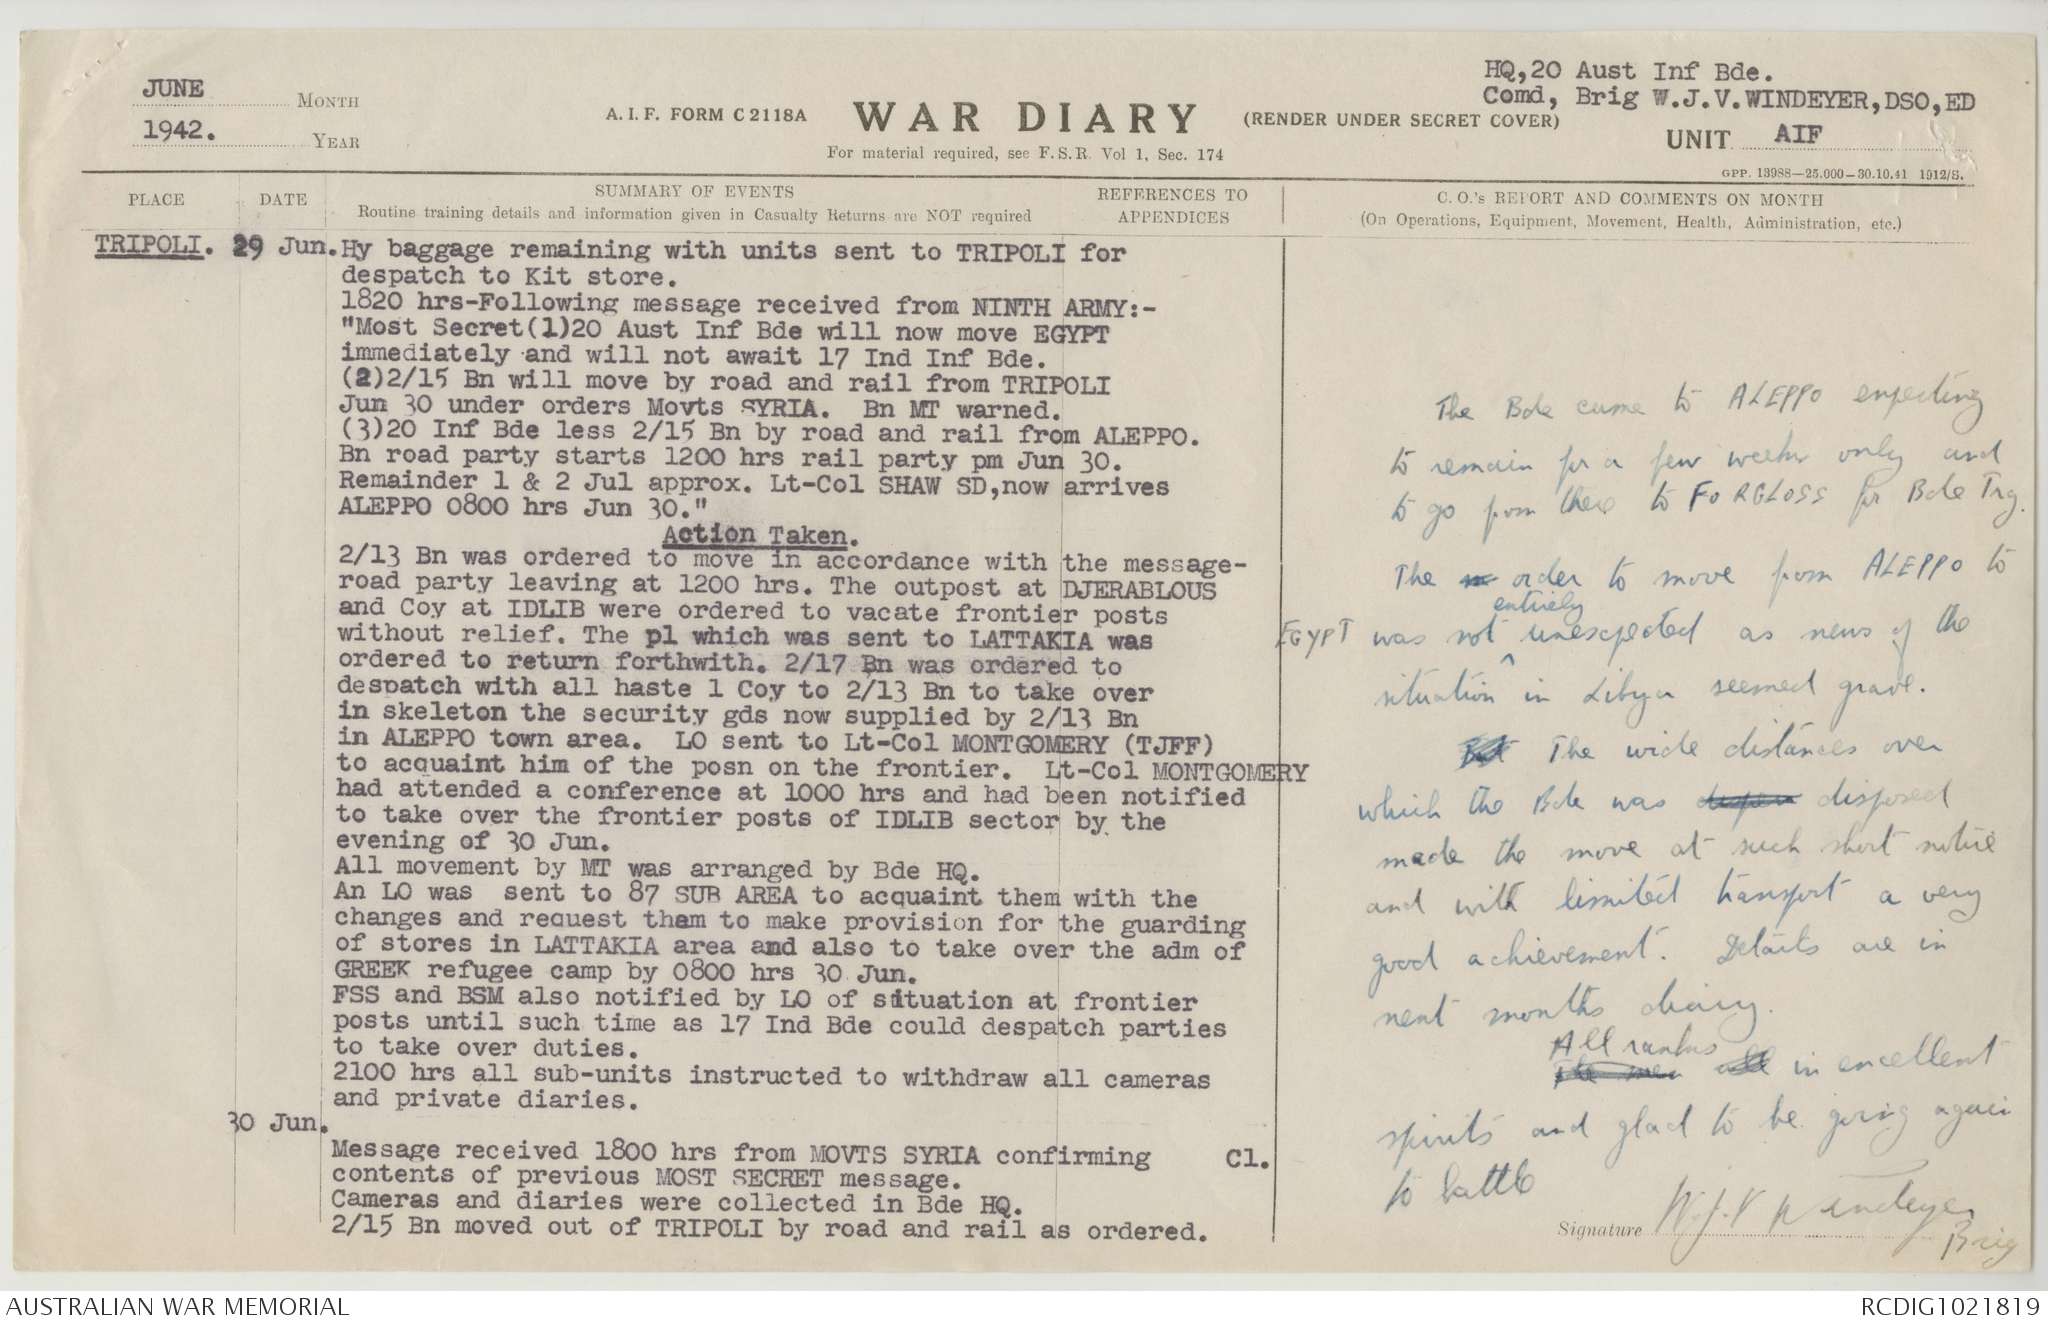 JUNE
MONTH
1942.
YEAR
A.I.F. FORM C2118A
WAR DIARY
(RENDER UNDER SECRET COVER)
For material required, see F.S.R. Vol 1, Sec. 174
HQ,20 Aust Inf Bde.
Comd, Brig W.J.V.WINDEYER,DSO,ED
UNIT AIF
GPP. 13988—25.000—30.10.41 1912/S.
PLACE
DATE
SUMMARY OF EVENTS
Routine training details and information given in Casualty Returns are NOT required
REFERENCES TO
APPENDICES
C.O.'s REPORT AND COMMENTS ON MONTH
(On Operations, Equipment, Movement, Health, Administration, etc.)
TRIPOLI. 29 Jun. Hy baggage remaining with units sent to TRIPOLI for
despatch to Kit store.
1820 hrs-Following message received from NINTH ARMY:-
"Most Secret(1)20 Aust Inf Bde will now move EGYPT
immediately and will not await 17 Ind Inf Bde.
(2)2/15 Bn will move by road and rail from TRIPOLI
Jun 30 under orders Movts SYRIA. Bn MT warned.
(3)20 Inf Bde less 2/15 Bn by road and rail from ALEPPO.
Bn road party starts 1200 hrs rail party pm Jun 30.
Remainder 1 & 2 Jul approx. Lt-Col SHAW SD,now arrives
ALEPPO 0800 hrs Jun 30."
Action Taken.
2/13 Bn was ordered to move in accordance with the message-
road party leaving at 1200 hrs. The outpost at DJERABLOUS
and Coy at IDLIB were ordered to vacate frontier posts
without relief. The pl which was sent to LATTAKIA was
ordered to return forthwith. 2/17 Bn was ordered to
despatch with all haste 1 Coy to 2/13 Bn to take over
in skeleton the security gds now supplied by 2/13 Bn
in ALEPPO town area. LO sent to Lt-Col MONTGOMERY (TJFF)
to acquaint him of the posn on the frontier. Lt-Col MONTGOMERY
had attended a conference at 1000 hrs and had been notified
to take over the frontier posts of IDLIB sector by the
evening of 30 Jun.
All movement by MT was arranged by Bde HQ.
An LO was sent to 87 SUB AREA to acquaint them with the
changes and request them to make provision for the guarding
of stores in LATTAKIA area and also to take over the adm of
GREEK refugee camp by 0800 hrs 30 Jun.
FSS and BSM also notified by LO of situation at frontier
posts until such time as 17 Ind Bde could despatch parties
to take over duties.
2100 hrs all sub-units instructed to withdraw all cameras
and private diaries.
30 Jun.
Message received 1800 hrs from MOVTS SYRIA confirming Cl.
contents of previous MOST SECRET message.
Cameras and diaries were collected in Bde HQ.
2/15 Bn moved out of TRIPOLI by road and rail as ordered.
The Bde came to ALEPPO expecting
to remain for a few weeks only and
to go from there to FORGLOSS for Bde Trg.
The order to move from ALEPPO to
entirely
EGYPT was not unexpected as news of the
situation in Libya seemed grave.
But The wide distances over
which the Bde was disposed
made the move at such short notice
and with limited transport a very
good achievement. Details are in
next months diary.
All ranks
The men all in excellent
spirits and glad to be going again
to battle
Signature W.J.V Windeyer
Brig
AUSTRALIAN WAR MEMORIAL
RCDIG1021819